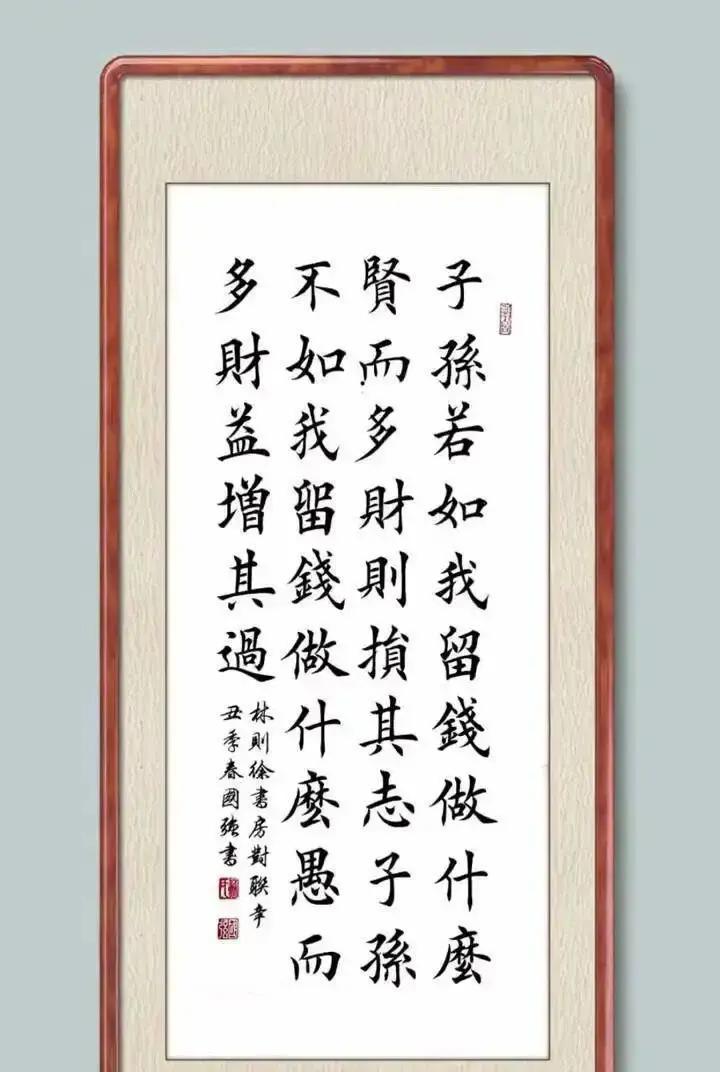 子孫若如我留錢做什麼
賢而多財則損其志子孫
不如我留錢做什麼愚而
多財益增其過
林則徐書房對聯辛
丑季春國強書